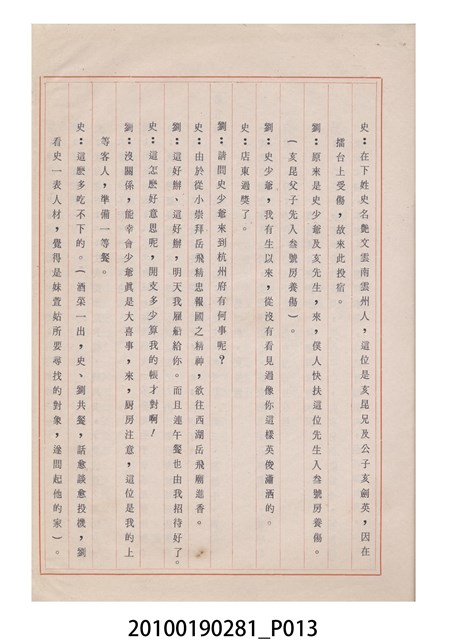 史：在下姓史名艷文雲南雲州人，這位是亥昆兄及公子亥劍英，因在
擂台上受傷，故來此投宿。
劉：原來是史少爺及亥先生，來，僕人快扶這位先生入叁號房養傷。
（亥昆父子先入叁號房養傷）。
劉：史少爺，我有生以來，從沒有看見過像你這樣英俊瀟洒的。
史：店東過獎了。
劉：請問史少爺來到杭州府有何事呢？
史：由於從小崇拜岳飛精忠報國之精神，欲往西湖岳飛廟進香。
劉：這好辦、這好辦，明天我雇船給你。而且連午餐也由我招待好了。
史：這怎麽好意思呢，開支多少算我的帳才對啊！
劉：沒關係，能幸會少爺眞是大喜事，來，厨房注意，這位是我的上
等客人，準備一等餐。
史：這麽多吃不下的。（酒菜一出，史、劉共餐，話愈談愈投機，劉
看史一表人材，覺得是妹萱姑所要尋找的對象，遂問起他的家）。
20100190281_P013